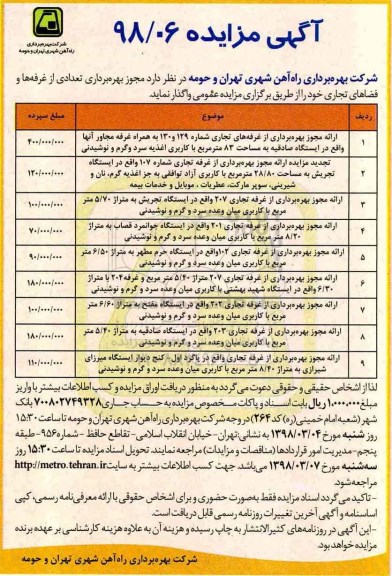 شرکت بهره‌برداری
راه‌آهن شهری تهران و حومه
آگهی مزایده ۹۸/۰۶
شرکت بهره‌برداری راه‌آهن شهری تهران و حومه در نظر دارد مجوز بهره‌برداری تعدادی از غرفه‌ها و
فضاهای تجاری خود را از طریق برگزاری مزایده عمومی واگذار نماید.
ردیف موضوع مبلغ سپرده
۱ ارائه مجوز بهره‌برداری از غرفه‌های تجاری شماره ۱۲۹ و ۱۳۰ به همراه غرفه مجاور آنها
واقع در ایستگاه صادقیه به مساحت ۸۳ مترمربع با کاربری اغذیه سرد و گرم و نوشیدنی ۴۰۰/۰۰۰/۰۰۰
۲ تجدید مزایده ارائه مجوز بهره‌برداری از غرفه تجاری شماره ۱۰۷ واقع در ایستگاه
تجریش به مساحت ۲۸/۸۰ مترمربع با کاربری آزاد توافقی به جز اغذیه گرم، نان و
شیرینی، سوپر مارکت، عطریات، موبایل و خدمات بیمه ۱۲۰/۰۰۰/۰۰۰
۳ ارائه مجوز بهره‌برداری از غرفه تجاری ۲۰۷ واقع در ایستگاه تجریش به متراژ ۵/۷۰ متر
مربع با کاربری میان وعده سرد و گرم و نوشیدنی ۱۰۰/۰۰۰/۰۰۰
۴ ارائه مجوز بهره‌برداری از غرفه تجاری ۲۰۱ واقع در ایستگاه جوانمرد قصاب به متراژ
۸/۲۰ متر مربع با کاربری میان وعده سرد و گرم و نوشیدنی ۷۰/۰۰۰/۰۰۰
۵ ارائه مجوز بهره‌برداری از غرفه تجاری ۱۰۲ واقع در ایستگاه حرم مطهر به متراژ ۶/۵۰ متر
مربع با کاربری میان وعده سرد و گرم و نوشیدنی ۹۰/۰۰۰/۰۰۰
۶ ارائه مجوز بهره‌برداری از غرفه تجاری ۲۰۷ متراژ ۵/۴۰ متر مربع و غرفه ۲۰۴ با متراژ
۶/۳۰ واقع در ایستگاه شهید بهشتی با کاربری میان وعده سرد و گرم و نوشیدنی ۱۸۰/۰۰۰/۰۰۰
۷ ارائه مجوز بهره‌برداری از غرفه تجاری ۲۰۲ واقع در ایستگاه مفتح به متراژ ۶/۶۰ متر
مربع با کاربری میان وعده سرد و گرم و نوشیدنی ۱۰۰/۰۰۰/۰۰۰
۸ ارائه مجوز بهره‌برداری از غرفه تجاری ۲۰۲ واقع در ایستگاه صادقیه به متراژ ۵/۴۰ متر
مربع با کاربری میان وعده سرد و گرم و نوشیدنی ۱۸۰/۰۰۰/۰۰۰
۹ ارائه مجوز بهره‌برداری از غرفه تجاری واقع در پاگرد اول- کنج دیوار ایستگاه میرزای
شیرازی به متراژ ۸/۴۰ متر مربع با کاربری میان وعده سرد و گرم و نوشیدنی ۱۱۰/۰۰۰/۰۰۰
لذا از اشخاص حقیقی و حقوقی دعوت می‌گردد به منظور دریافت اوراق مزایده و کسب اطلاعات بیشتر با واریز
مبلغ ۱.۰۰۰.۰۰۰ ریال بابت اسناد و پاکات مخصوص مزایده به حساب جاری ۷۰۰۸۰۲۷۴۹۳۲۸ بانک
شهر (شعبه امام خمینی(ره) کد ۲۶۴) در وجه شرکت بهره‌برداری راه‌آهن شهری تهران و حومه تا ساعت ۱۵:۳۰
روز شنبه مورخ ۱۳۹۸/۰۳/۰۴ به نشانی: تهران- خیابان انقلاب اسلامی- تقاطع حافظ - شماره ۹۵۶- طبقه
پنجم- مدیریت امور قراردادها (مناقصات و مزایدات) مراجعه نمایند. تحویل اسناد مزایده تا ساعت ۱۵:۳۰ روز
سه‌شنبه مورخ ۱۳۹۸/۰۳/۰۷ می‌باشد. جهت کسب اطلاعات بیشتر به سایت http://metro.tehran.ir
مراجعه شود.
- تاکید می‌گردد اسناد مزایده فقط به‌صورت حضوری و برای اشخاص حقوقی با ارائه معرفی‌نامه رسمی، کپی
اساسنامه و آگهی آخرین تغییرات روزنامه رسمی قابل دریافت است.
- این آگهی در روزنامه‌های کثیرالانتشار به چاپ رسیده و هزینه آن به علاوه هزینه کارشناسی بر عهده برنده
مزایده خواهد بود.
شرکت بهره‌برداری راه‌آهن شهری تهران و حومه